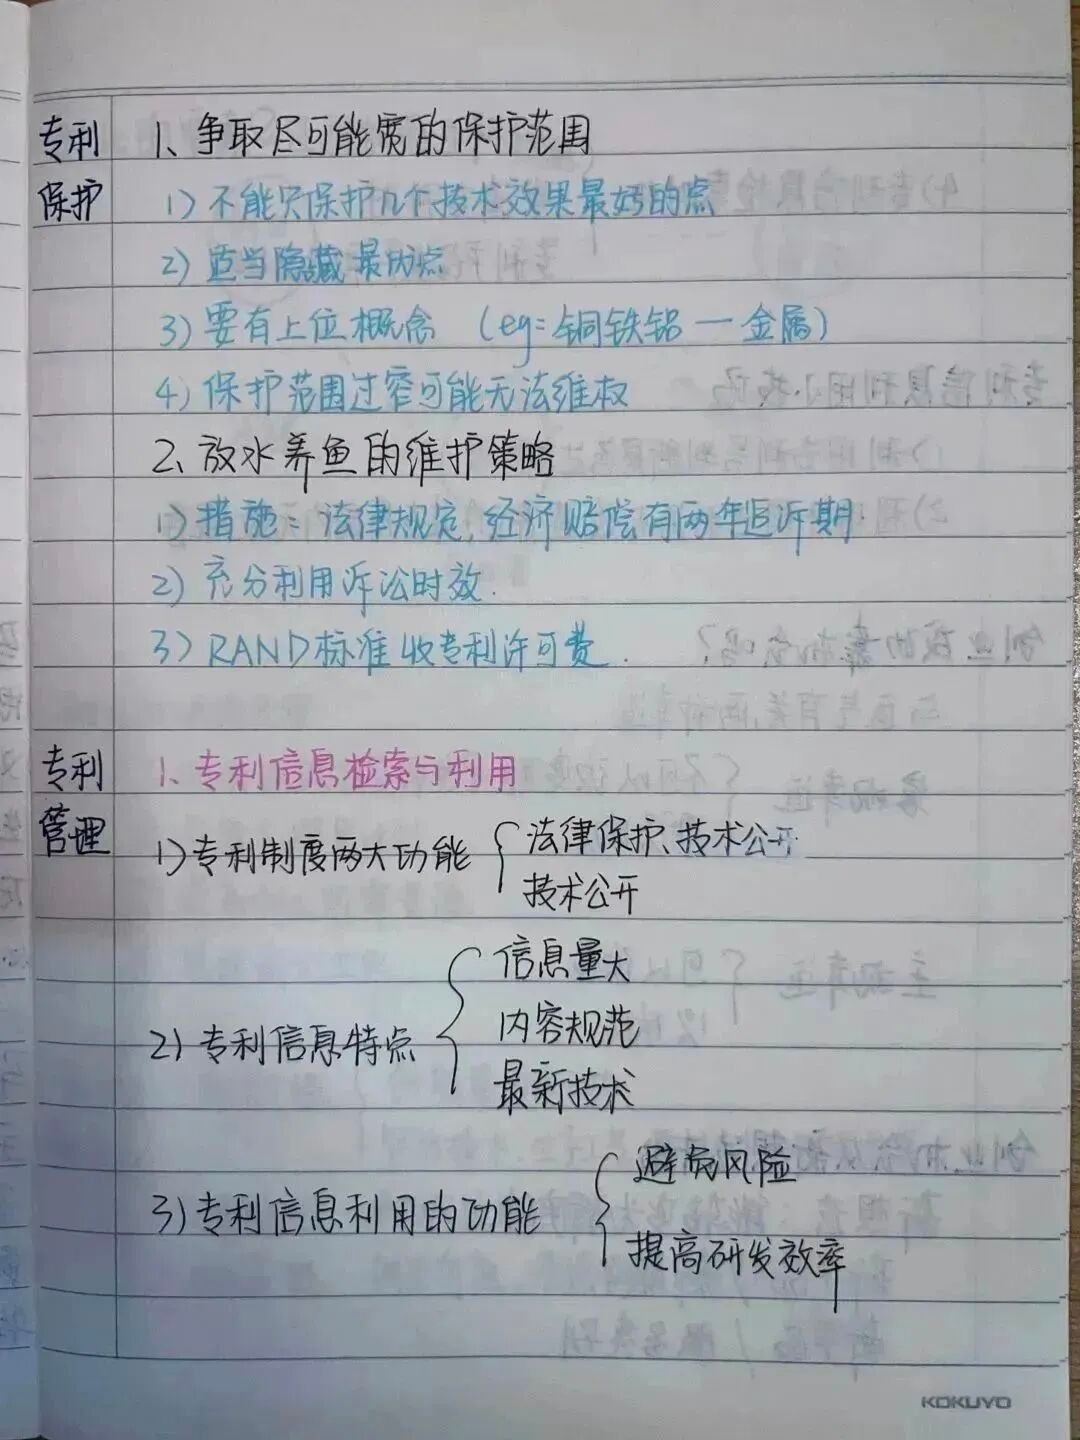 专利
保护
1、争取尽可能宽的保护范围
1) 不能只保护几个技术效果最好的点
2) 适当隐藏最优点
3) 要有上位概念 (eg: 铜铁铝 — 金属)
4) 保护范围过窄可能无法维权
2、放水养鱼的维护策略
1) 措施: 法律规定, 经济赔偿有两年追诉期.
2) 充分利用诉讼时效.
3) RAND标准收专利许可费.
专利
管理
1、专利信息检索与利用
1) 专利制度两大功能
法律保护、技术公开
技术公开
2) 专利信息特点
信息量大
内容规范
最新技术
3) 专利信息利用的功能
避免风险
提高研发效率
KOKUYO